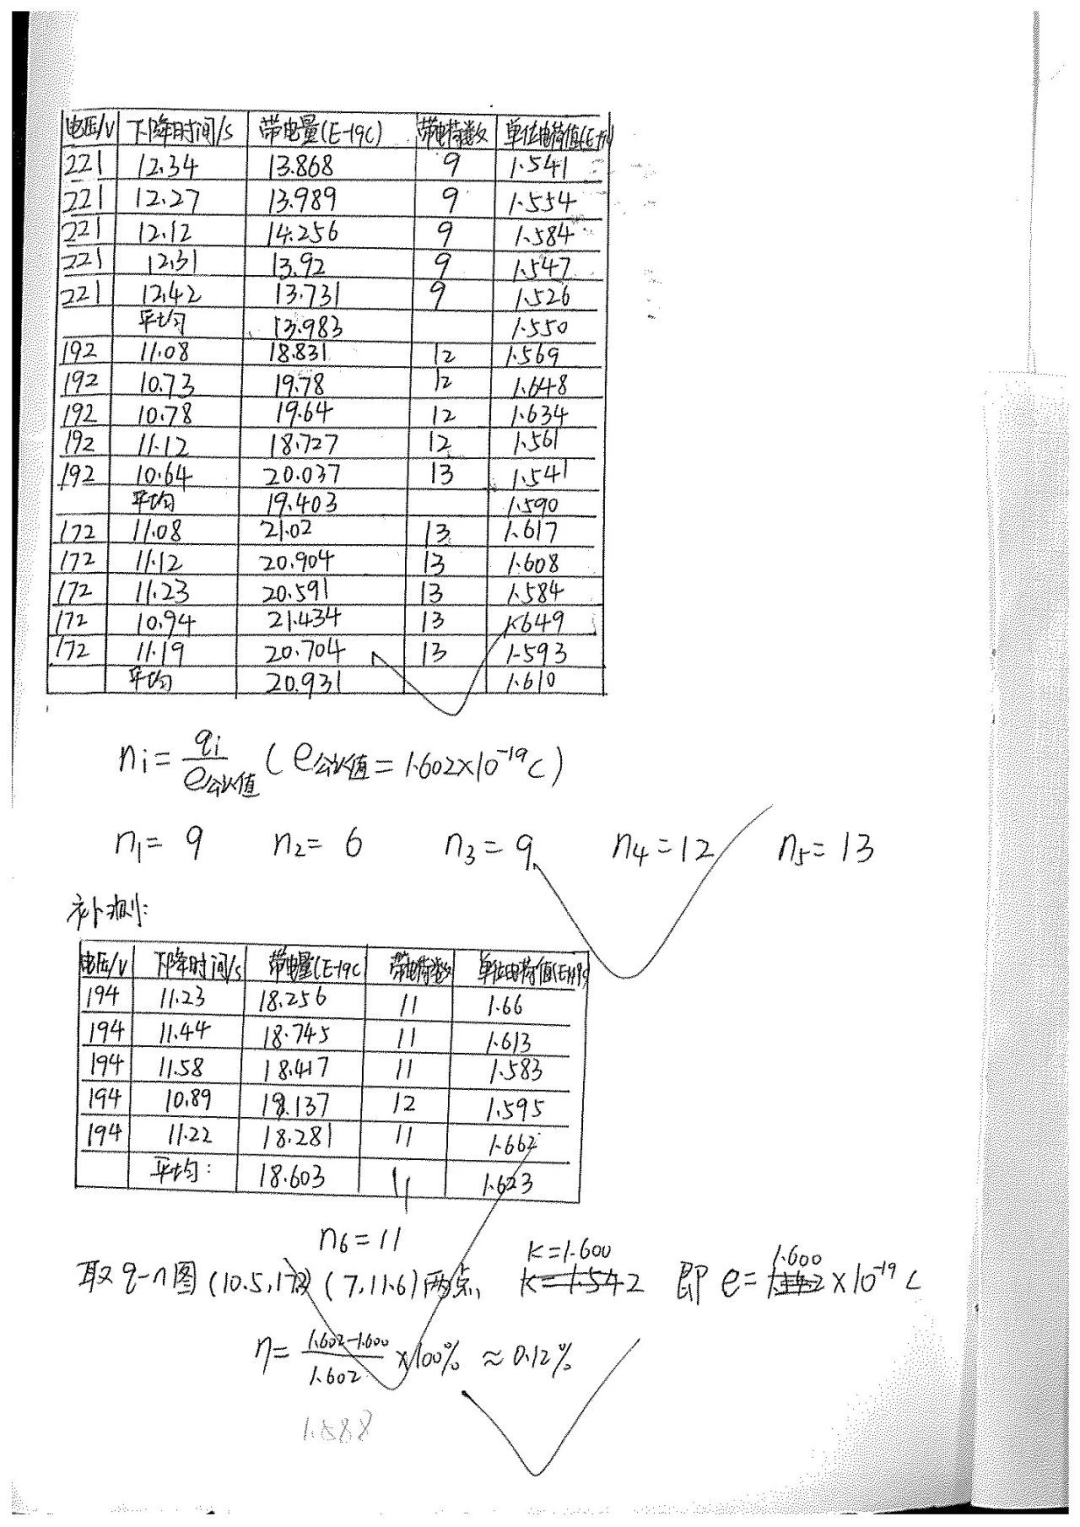 电压/V 下降时间/s 带电量(E-19C) 带电荷数 单位电荷值(E-19C)
221 12.34 13.868 9 1.541
221 12.27 13.989 9 1.554
221 12.12 14.256 9 1.584
221 12.31 13.92 9 1.547
221 12.42 13.731 9 1.526
平均 13.983 1.550
192 11.08 18.831 12 1.569
192 10.73 19.78 12 1.648
192 10.78 19.64 12 1.634
192 11.12 18.727 12 1.561
192 10.64 20.037 13 1.541
平均 19.403 1.590
172 11.08 21.02 13 1.617
172 11.12 20.904 13 1.608
172 11.23 20.591 13 1.584
172 10.94 21.434 13 1.649
172 11.19 20.704 13 1.593
平均 20.931 1.610
ni = qi/e公认值 (e公认值 = 1.602×10⁻¹⁹C)
n₁= 9 n₂= 6 n₃= 9 n₄=12 n₅= 13
补测:
电压/V 下降时间/s 带电量(E-19C 带电荷数 单位电荷值(E-19C)
194 11.23 18.256 11 1.66
194 11.44 18.745 11 1.613
194 11.58 18.417 11 1.583
194 10.89 19.137 12 1.595
194 11.22 18.281 11 1.662
平均: 18.603 11 1.623
n₆=11
k=1.600 1.600
取q-n图 (10.5, (7,11.6)两点, k=1.542 即 e= ×10⁻¹⁹C
η= (1.602-1.600)/1.602 ×100% ≈ 0.12%
1.588